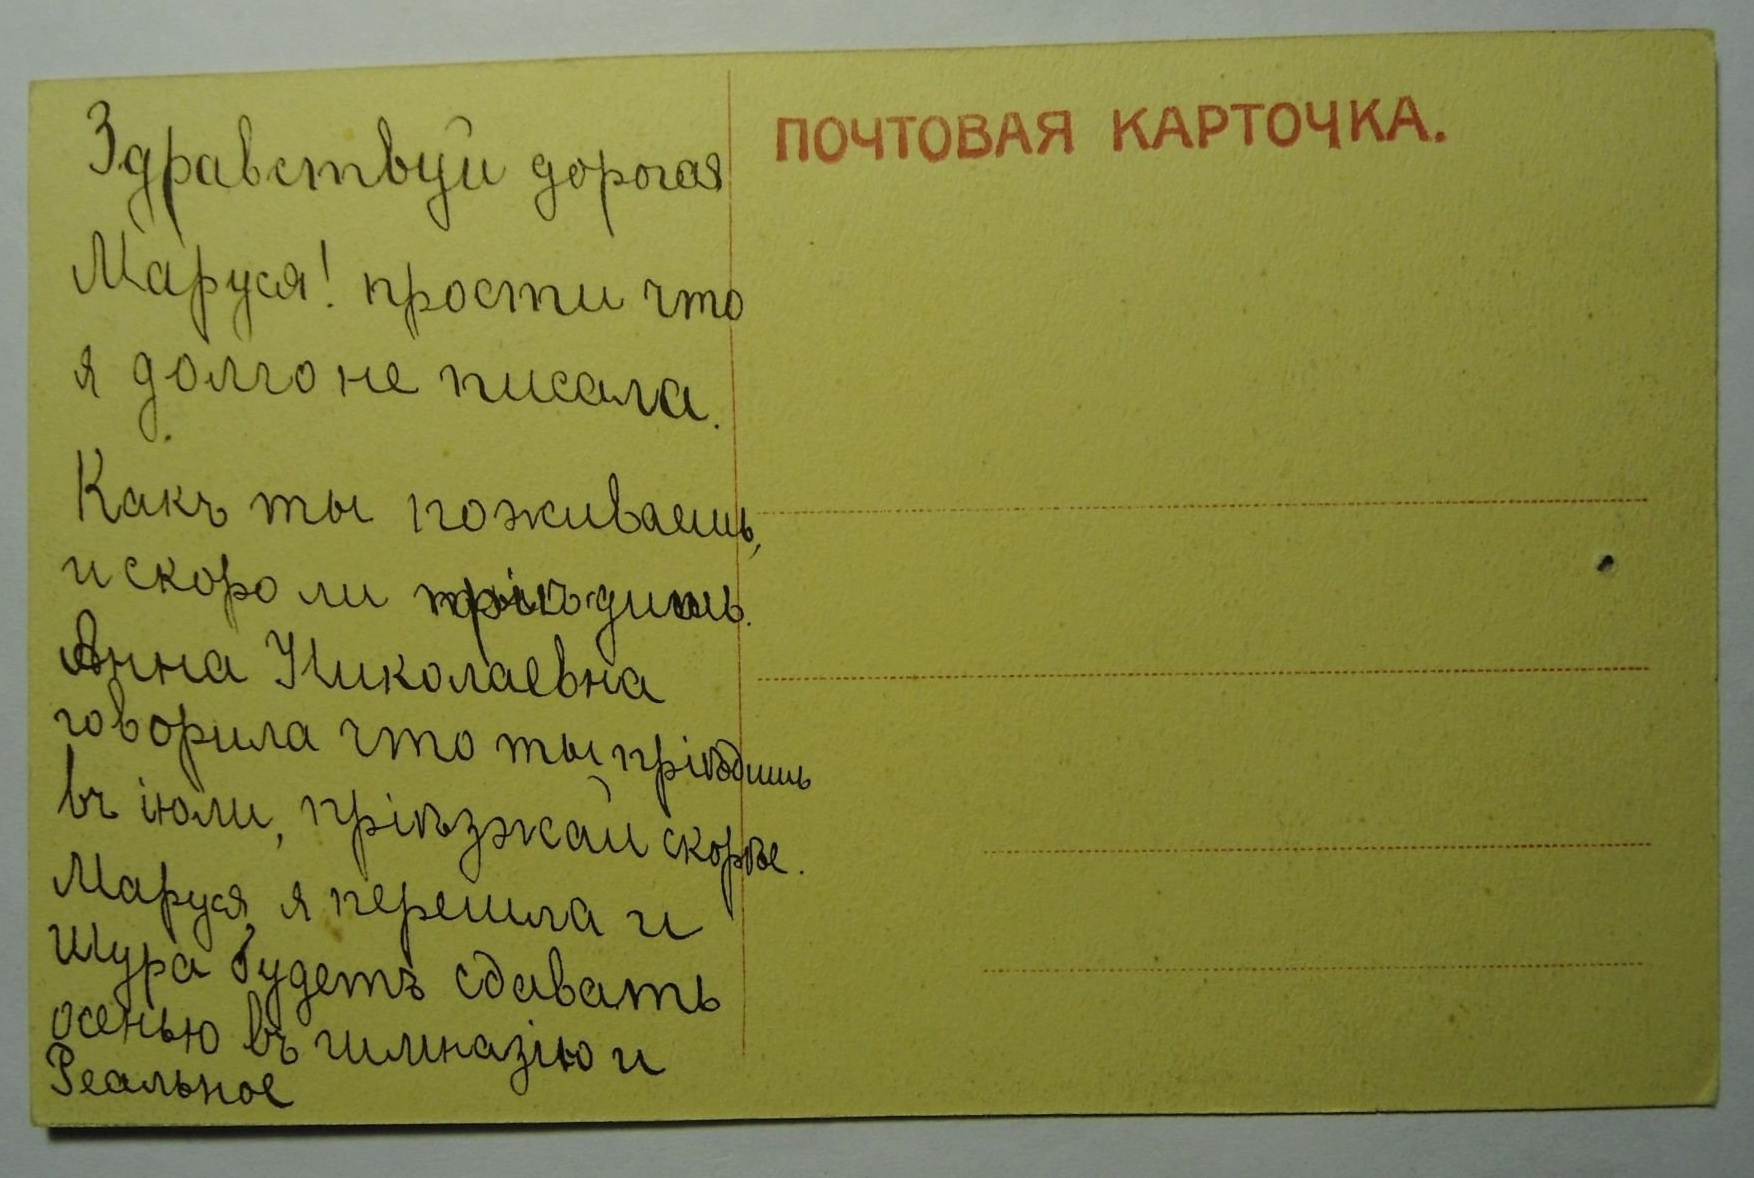 Здравствуй дорогая
Маруся! прости что
я долго не писала.
Какъ ты поживаешь,
и скоро ли пріѣдишь.
Анна Николаевна
говорила что ты пріѣдишь
въ іюли, пріѣзжай скорѣе.
Маруся, я перешла и
Шура будетъ сдавать
осенью въ гимназію и
Реальное
ПОЧТОВАЯ КАРТОЧКА.